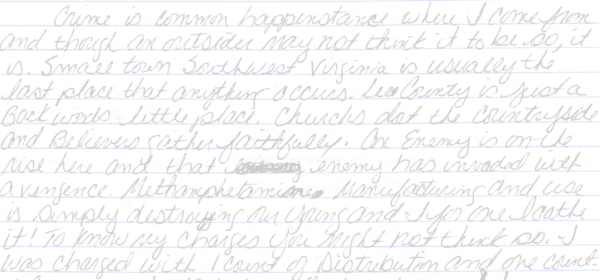 Crime is common happenstance where I come from
and though an outsider may not think it to be so, it
is. Small town Southwest Virginia is usually the
last place that anything occurs. Lee County is just a
Backwords little place. Churchs dot the Countryside
and Believers gather faithfully. An Enemy is on-the
rise here and that enemy has invaded with
a vengence. Methamphetamine Manufacturing and use
is simply destroying our young and I for one loathe
it! To know my Charges you might not think so. I
was charged with 1 count of Distribution and one count